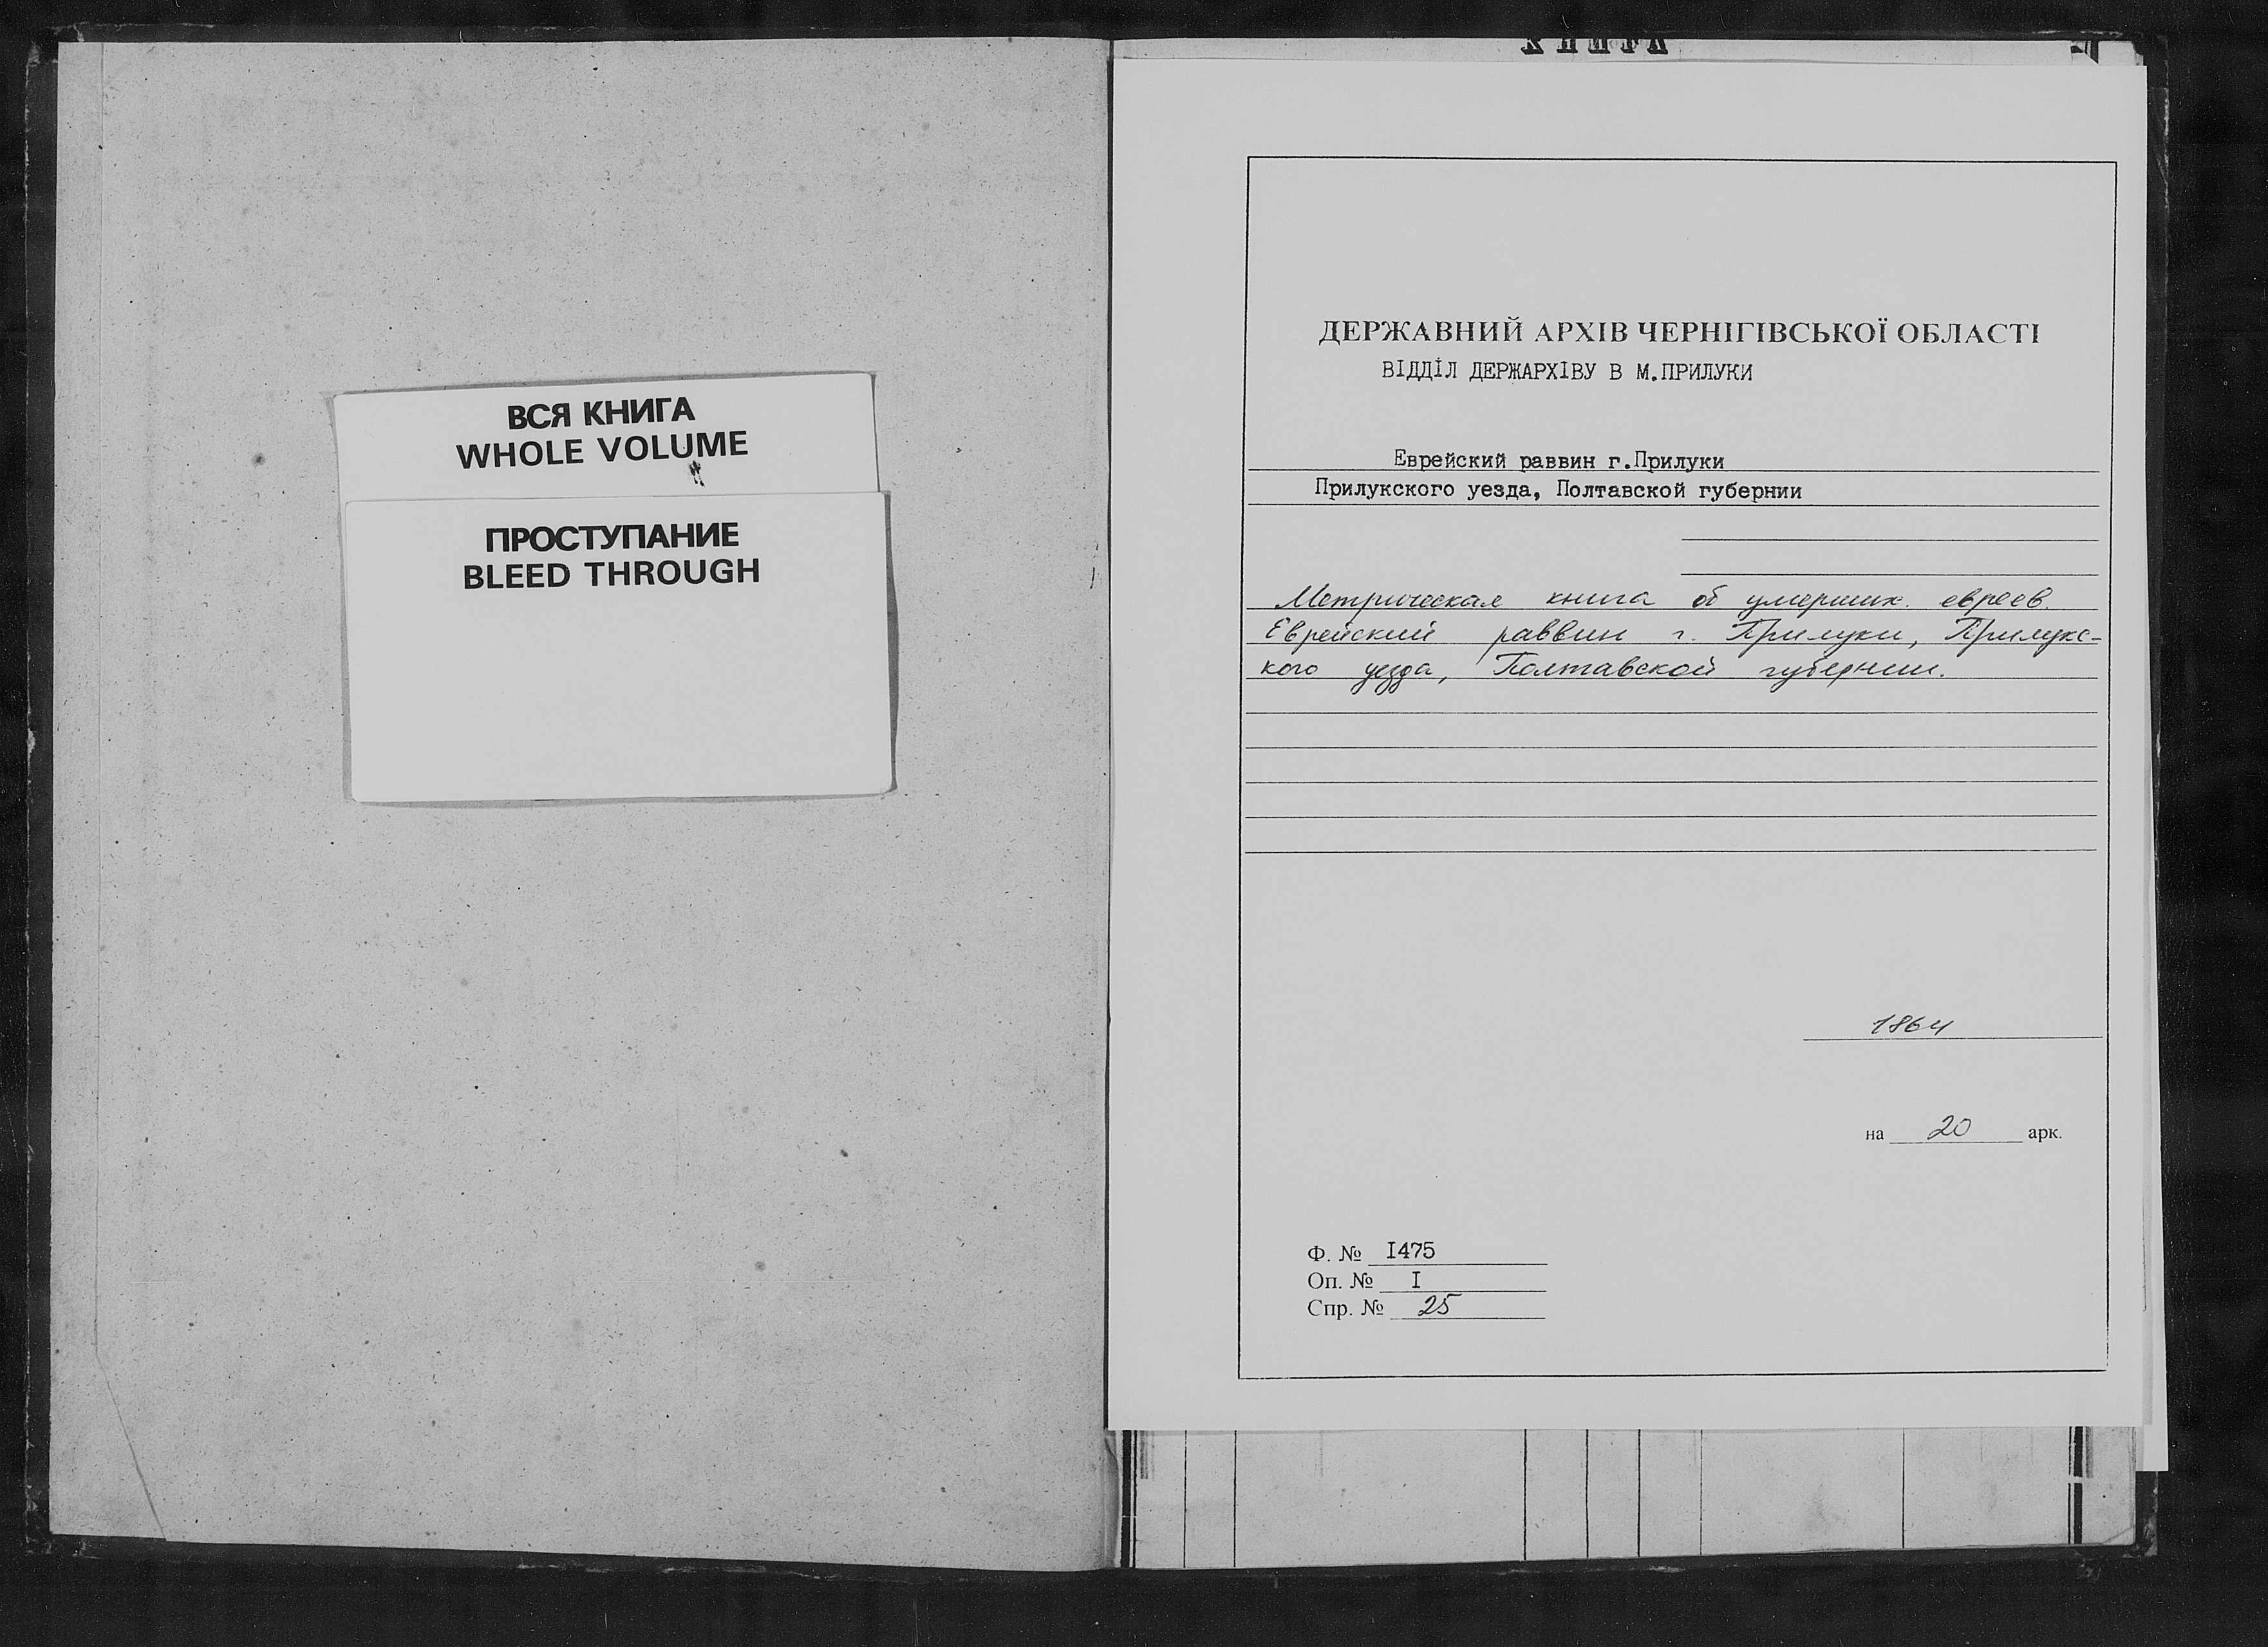 ВСЯ КНИГА
WHOLE VOLUME
ПРОСТУПАНИЕ
BLEED THROUGH
КНИГА
ДЕРЖАВНИЙ АРХІВ ЧЕРНІГІВСЬКОЇ ОБЛАСТІ
ВІДДІЛ ДЕРЖАРХІВУ В М.ПРИЛУКИ
Еврейский раввин г.Прилуки
Прилукского уезда, Полтавской губернии
Метрическая книга об умерших. евреев.
Еврейский раввин г. Прилуки, Прилукс-
кого уезда, Полтавской губернии.
1864
на 20 арк.
Ф. № I475
Оп. № I
Спр. № 25